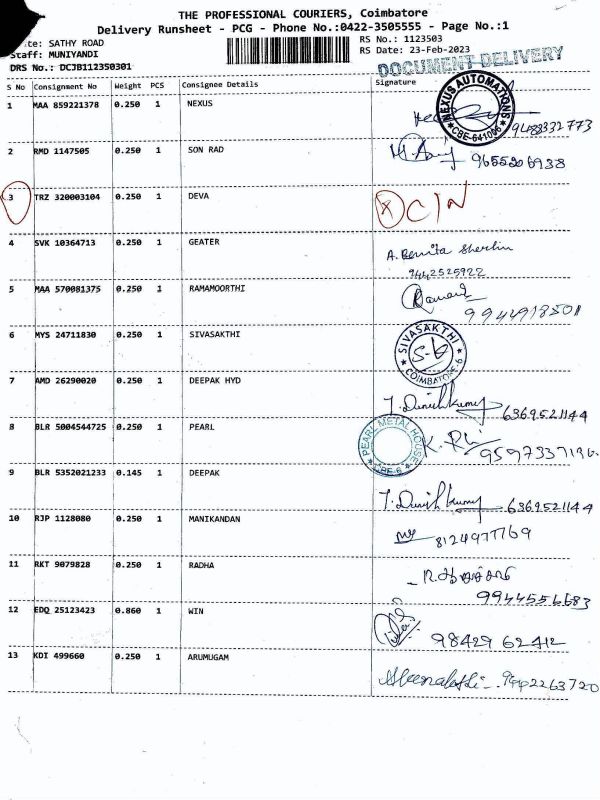 THE PROFESSIONAL COURIERS, Coimbatore
Delivery Runsheet - PCG - Phone No.:0422-3505555 - Page No.:1
te: SATHY ROAD
RS No.: 1123503
Staff: MUNIYANDI
RS Date: 23-Feb-2023
DRS No.: DCJB112350301
DOCUMENT DELIVERY
S No Consignment No Weight PCS Consignee Details Signature
1 MAA 859221378 0.250 1 NEXUS
NEXUS AUTOMATIONS
CBE-641006
9488332773
2 RMD 1147505 0.250 1 SON RAD
9655206938
3 TRZ 320003104 0.250 1 DEVA
X C/N
4 SVK 10364713 0.250 1 GEATER
A. Benita Sherlin
9442525922
5 MAA 570081375 0.250 1 RAMAMOORTHI
9944918501
6 MYS 24711830 0.250 1 SIVASAKTHI
SIVASAKTHI
COIMBATORE-6
7 AMD 26290020 0.250 1 DEEPAK HYD
T. Dinesh Kumar 6369521144
8 BLR 5004544725 0.250 1 PEARL
PEARL METAL HOUSE
CBE-6
9 BLR 5352021233 0.145 1 DEEPAK
T. Dinesh Kumar 6369521144
10 RJP 1128080 0.250 1 MANIKANDAN
8124977769
11 RKT 9079828 0.250 1 RADHA
9944556683
12 EDQ 25123423 0.860 1 WIN
98429 62412
13 KDI 499660 0.250 1 ARUMUGAM
Meenakshi 9442263720